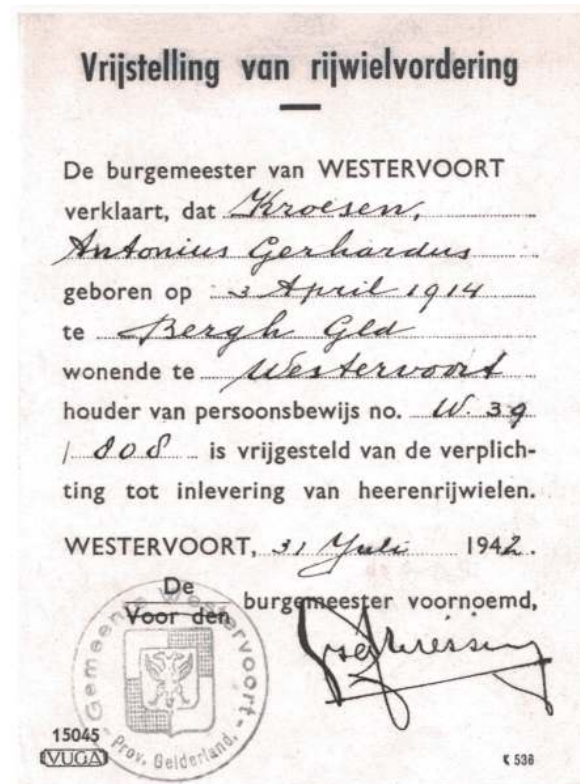 Vrijstelling van rijwielvordering
De burgemeester van WESTERVOORT
verklaart, dat Kroesen,
Antonius Gerhardus
geboren op 3 April 1914
te Bergh Gld
wonende te Westervoort
houder van persoonsbewijs no. W. 39
/ 808 is vrijgesteld van de verplich-
ting tot inlevering van heerenrijwielen.
WESTERVOORT, 31 Juli 1942.
De
Voor den burgemeester voornoemd,
Gemeente Westervoort
Prov. Gelderland.
15045
VUGA
K 538